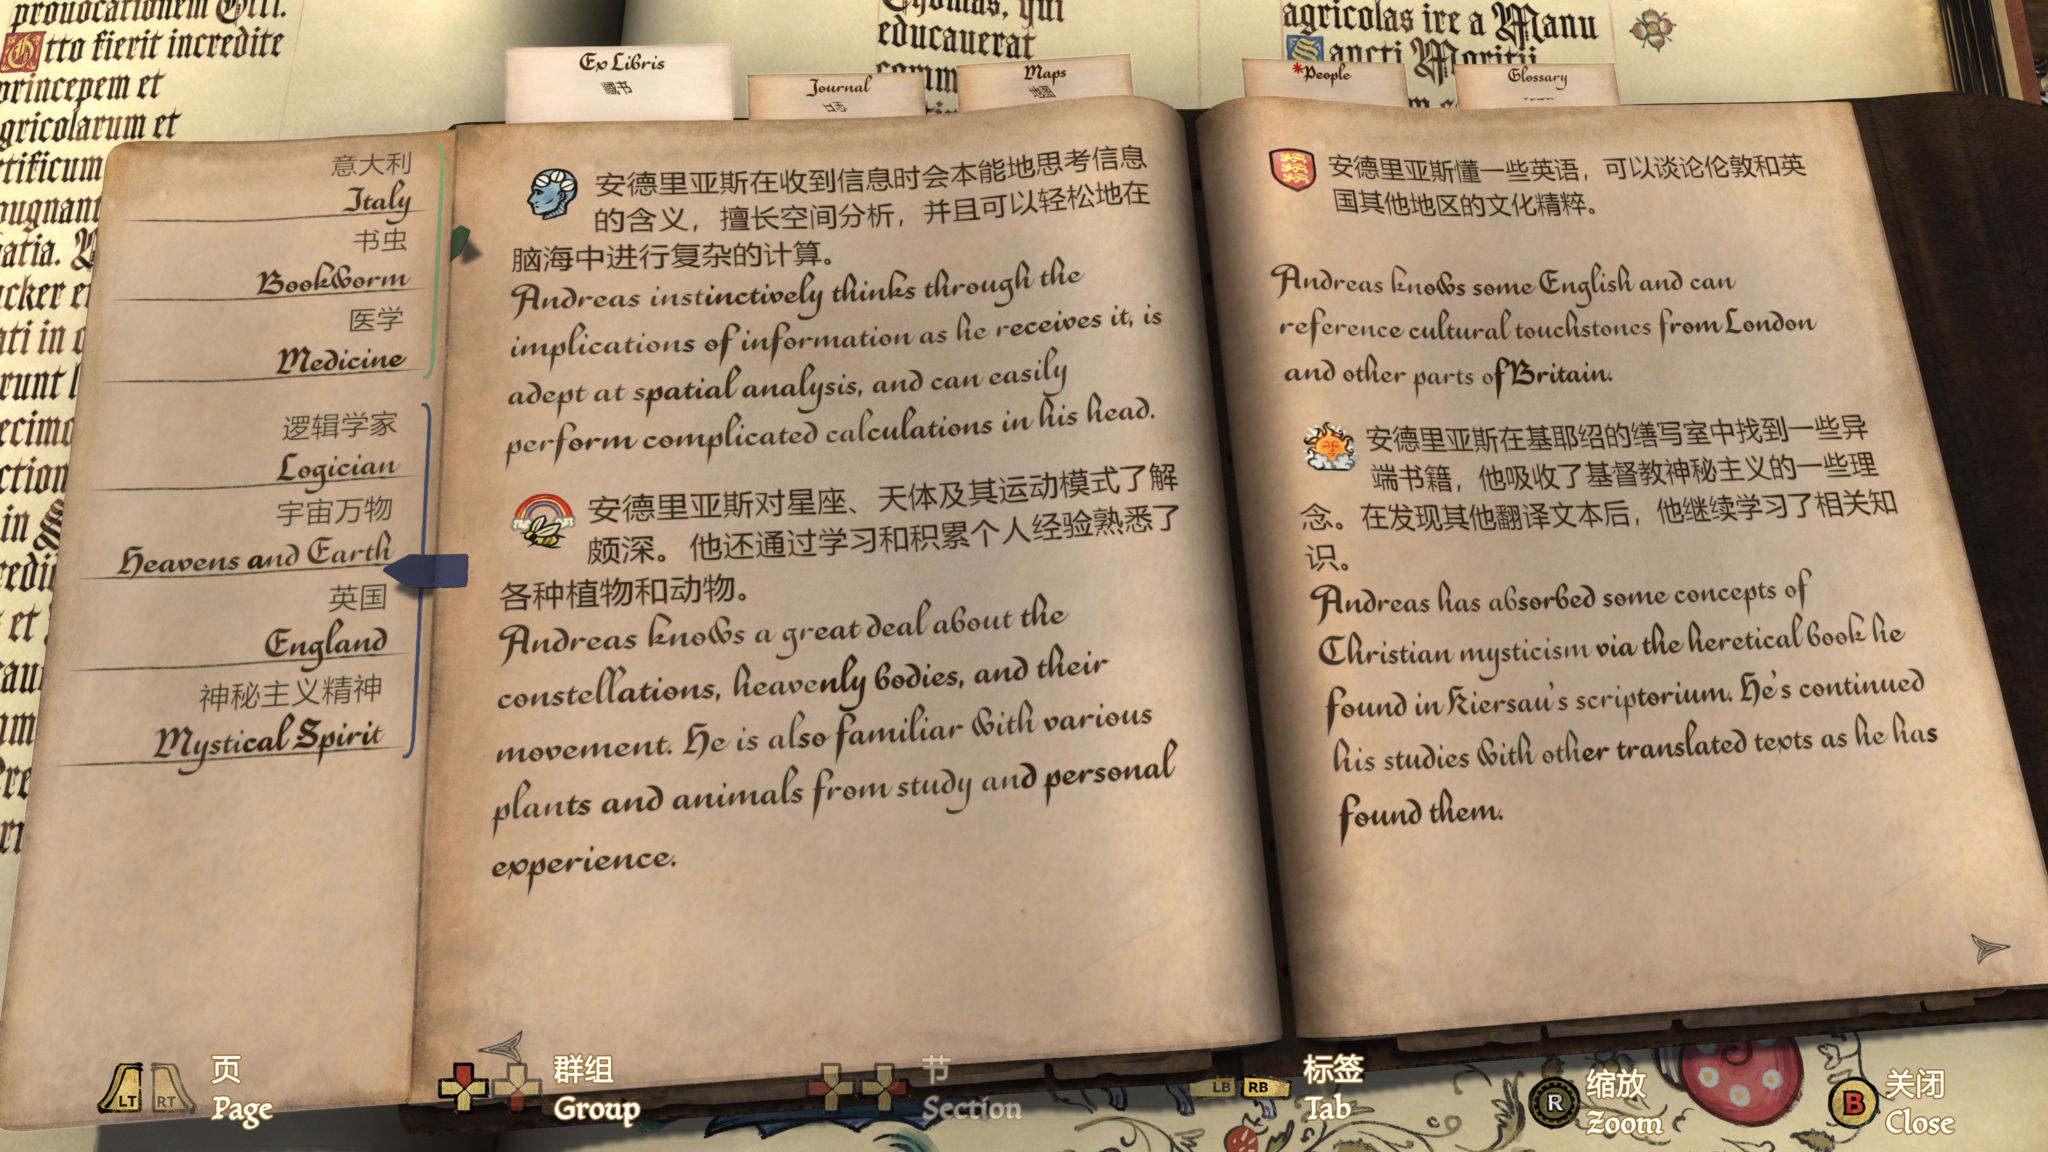 provocationem Otti.
Otto fierit incredite
princepem et
agricolarum et
Thomas, qui
educauerat
agricolas ire a Manu
Sancti Moritii
Ex Libris
藏书
Journal
日志
Maps
地图
*People
Glossary
意大利
Italy
书虫
Bookworm
医学
Medicine
逻辑学家
Logician
宇宙万物
Heavens and Earth
英国
England
神秘主义精神
Mystical Spirit
安德里亚斯在收到信息时会本能地思考信息
的含义，擅长空间分析，并且可以轻松地在
脑海中进行复杂的计算。
Andreas instinctively thinks through the
implications of information as he receives it, is
adept at spatial analysis, and can easily
perform complicated calculations in his head.
安德里亚斯对星座、天体及其运动模式了解
颇深。他还通过学习和积累个人经验熟悉了
各种植物和动物。
Andreas knows a great deal about the
constellations, heavenly bodies, and their
movement. He is also familiar with various
plants and animals from study and personal
experience.
安德里亚斯懂一些英语，可以谈论伦敦和英
国其他地区的文化精粹。
Andreas knows some English and can
reference cultural touchstones from London
and other parts of Britain.
安德里亚斯在基耶绍的缮写室中找到一些异
端书籍，他吸收了基督教神秘主义的一些理
念。在发现其他翻译文本后，他继续学习了相关知
识。
Andreas has absorbed some concepts of
Christian mysticism via the heretical book he
found in Kiersau's scriptorium. He's continued
his studies with other translated texts as he has
found them.
LT RT
页
Page
群组
Group
节
Section
LB RB
标签
Tab
R
缩放
Zoom
B
关闭
Close